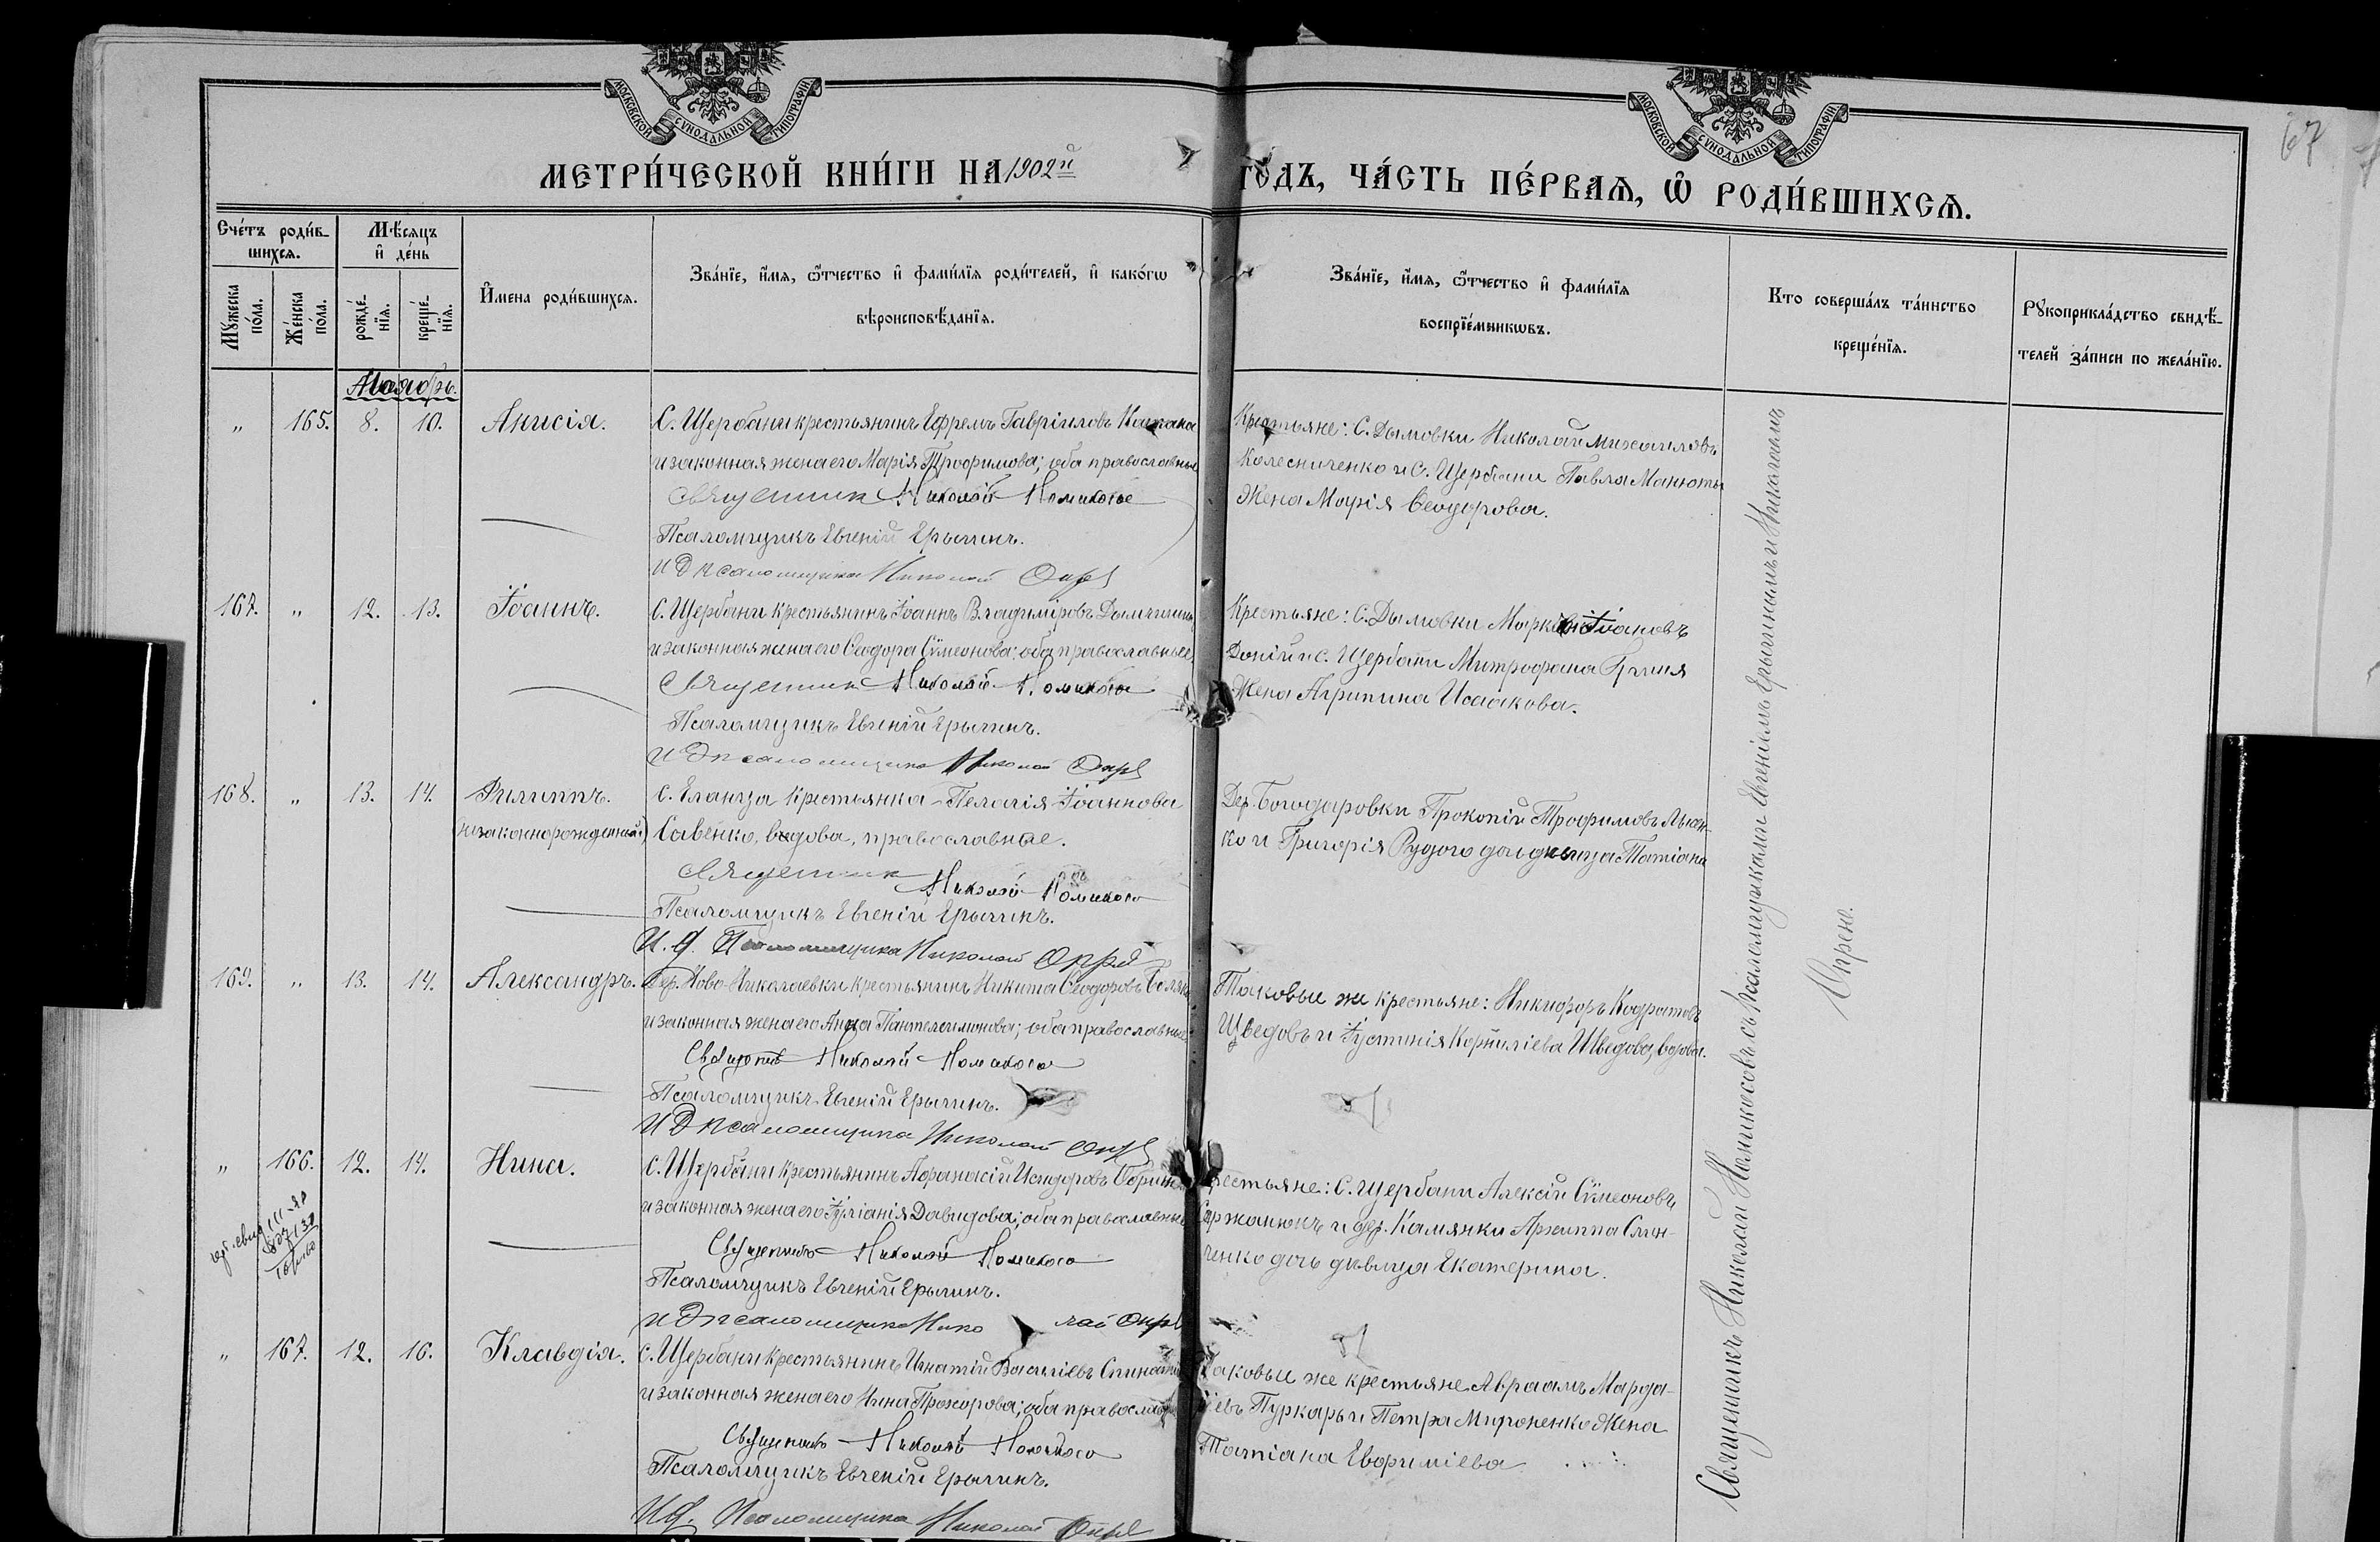 МОСКОВСКОЙ СѴНОДАЛЬНОЙ ТИПОГРАФІИ
МОСКОВСКОЙ СѴНОДАЛЬНОЙ ТИПОГРАФІИ
67
МЕТРИ́ЧЕСКОЙ КНИ́ГИ НА 1902й
ГОДЪ, ЧА́СТЬ ПЕ́РВАѦ, Ѡ҆ РОДИ́ВШИХСѦ.
Сче́тъ роди́в-
шихсѧ.
Мѣ́сѧцъ
и҆ де́нь
Мꙋ́жеска
по́ла.
Же́нска
по́ла.
рожде́-
нїѧ.
креще́-
нїѧ.
И҆мена роди́вшихсѧ.
Зва́нїе, и҆́мѧ, ѻ҆́тчество и҆ фами́лїѧ роди́телей, и҆ како́гѡ
вѣроисповѣ́данїѧ.
Зва́нїе, и҆́мѧ, ѻ҆́тчество и҆ фами́лїѧ
воспрїе́мникѡвъ.
Кто соверша́лъ та́инство
креще́нїѧ.
Рꙋкоприкла́дство свидѣ́-
телей за́писи по жела́нїю.
Ноябрь.
" 165. 8. 10. Анисія.
С. Щербани крестьянинъ Ефремъ Гавріиловъ
и законная жена его Марія Трофимова; оба православные
Священник Николай
Псаломщикъ Евгеній Ерыгинъ.
И Д псаломщика Николай
Крестьяне: С. Дымовки Николай Михаиловъ
Колесниченко и С. Щербани Павла Манюты
жена Марія Ѳеодорова.
167. " 12. 13. Іоаннъ.
С. Щербани крестьянинъ Іоаннъ Владиміровъ
и законная жена его Ѳеодора Сѵмеонова; оба православные
Священник Николай
Псаломщикъ Евгеній Ерыгинъ.
И Д псаломщика Николай
Крестьяне: С. Дымовки
Доній и с. Щербани Митрофана
жена Агрипина Исаакова.
168. " 13. 14. Филиппъ.
(незаконнорожденный)
С. Еланца крестьянка Пелагія Іоаннова
Савенко, вдова, православные.
Священник Николай
Псаломщикъ Евгеній Ерыгинъ.
И. Д. Псаломщика Николай
Дер. Богодаровки Прокопій Трофимовъ
ко и Григорія Рудого дочь дѣвица Татіана
169. " 13. 14. Александръ.
Дер. Ново-Николаевки крестьянинъ Никита Ѳеодоровъ
и законная жена его Анна Пантелеимонова; оба православные
Священникъ Николай
Псаломщикъ Евгеній Ерыгинъ.
И Д псаломщика Николай
Таковые же крестьяне: Никифоръ Кодратовъ
Шведовъ и Іустинія Корниліева Шведова, вдова.
" 166. 12. 14. Нина.
С. Щербани крестьянинъ Аѳанасій Исидоровъ
и законная жена его Іуліанія Давидова; оба православные
Священникъ Николай
Псаломщикъ Евгеній Ерыгинъ.
И Д псаломщика Николай
Крестьяне: С. Щербани Алексій Сѵмеоновъ
Сержанюкъ и дер. Камянки Архиппа Слин-
ченко дочь дѣвица Екатерина.
" 167. 12. 16. Клавдія.
С. Щербани крестьянинъ Игнатій Василіевъ
и законная жена его Нина Прохорова; оба православные
Священникъ Николай
Псаломщикъ Евгеній Ерыгинъ.
И Д. Псаломщика Николай
Таковые же крестьяне Авраамъ Марда-
ріевъ Пуркарь и Петра Мироненко жена
Татіана Евфиміева
Священникъ Николай съ псаломщиками Евгеніемъ Ерыгинымъ и Николаемъ
Опрею.